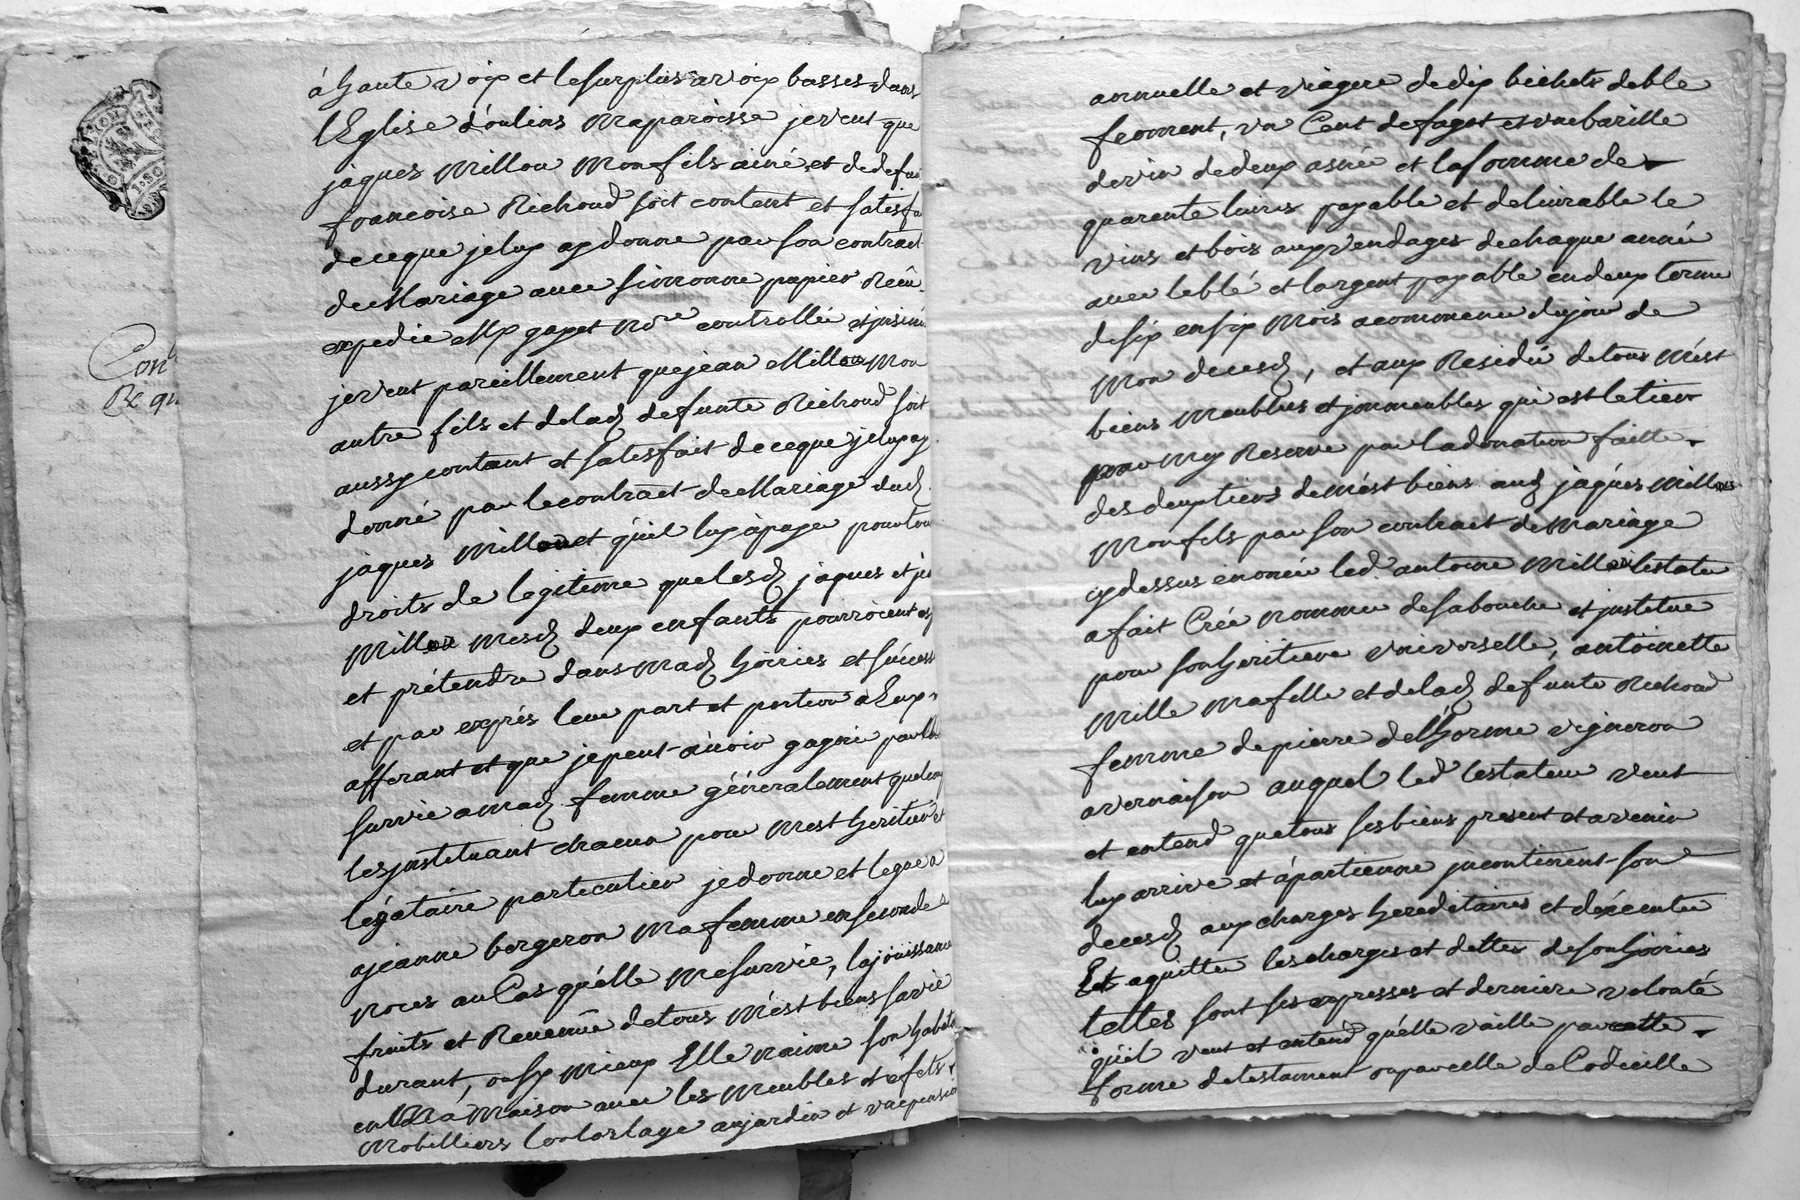 à haute voix et le surplus a voix basses dans
l'Eglise d'oulins ma paroisse je veut que
jaques Millou mon fils ainé et de defu
francoise Richoud soit content et satisfa
de ce que je luy ay donne par son contract
de Mariage avec simronne papier Recû
expedie Me gayet Nore controllée et jnsinué
je veut pareillement que jean Millou mon
autre fils et de lad. defunte Richoud soit
aussy contant et satisfait de ce que je luy ay
donné par le contract de Mariage dud.
jaques Millou et qu'il luy a paye pour tou
droits de legitime que lesd. jaques et je
Millou mesd. deux enfants pourroient
et prétendre dans mad. hoiries et succes
et par exprés leur part et portion a Eux
afferant et que je peut avoir gagné par
survie a mad. femme généralement quelcon
les jnstituant chacun pour mest heritier et
légataire particulier je donne et legue a
a jeanne bergeron ma femme en seconde
noces au Cas qu'élle me survive, la joüissance
fruits et Revenûe de tous mést biens sa vie
durant, ou sy mieux Elle n'aime son habita
en Ma Maison avec les meubles et efets
Mobilliers lonlarlage au jardin et vne pension
Con
Re qu
annuelle et viagere de dix bichets de blé
froment, vn Cent de fagot et vne barille
de vin de deux asnée et la somme de
quarente livres payable et delivrable le
vins et bois aux vendages de chaque année
avec le blé et l'argent payable en deux terme
de six en six Mois a commencer du jour de
Mon decesd., et aux Residû de tous mést
biens Meubles et jmmeubles qui est le tier
par moy Reservé par la donation faitte
des deux tiers de mést biens aud. jâques Millou
Mon fils par son contract de Mariage
cy dessus énoncée led. antoine Millou testateu
a fait Créé nommé de sa bouche et jnstitue
pour son heritiere vniverselle, antoinette
Mille Ma fille et de lad. defunte Richoud
femme de pierre delhorme vigneron
a vernaison auquel led. testateur veut
et entend que tous ses biens present et avenir
luy arrive et apartienne jncontinent son
decesd. aux charges hereditaires et d'éxécuter
Et aquitter les charges et dettes de son hoiries
telles sont ses expresses et derniere volonté
qu'il veut et entend qu'élle vaille par cette
forme de testament ou par celle de Codicille